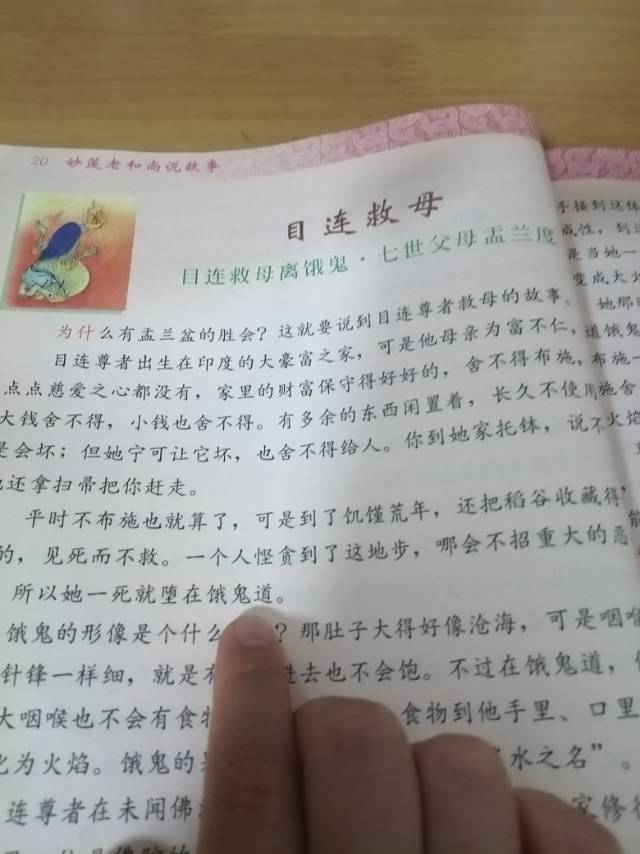 20 妙莲老和尚说故事
目连救母
目连救母离饿鬼·七世父母盂兰度
为什么有盂兰盆的胜会？这就要说到目连尊者救母的故事。
目连尊者出生在印度的大豪富之家，可是他母亲为富不仁，
点点慈爱之心都没有，家里的财富保守得好好的，舍不得布施，
大钱舍不得，小钱也舍不得。有多余的东西闲置着，长久不使用
是会坏；但她宁可让它坏，也舍不得给人。你到她家托钵，说不
还拿扫帚把你赶走。
平时不布施也就算了，可是到了饥馑荒年，还把稻谷收藏得
的，见死而不救。一个人悭贪到了这地步，哪会不招重大的恶
所以她一死就堕在饿鬼道。
饿鬼的形像是个什么？那肚子大得好像沧海，可是咽喉
针锋一样细，就是 进去也不会饱。不过在饿鬼道，
大咽喉也不会有食 食物到他手里、口里
化为火焰。饿鬼的 水之名”。
连尊者在未闻佛 家修行
手接到这
成性，到
是当她一
变成大火
她那
道饿鬼
布施一
施舍
火焰